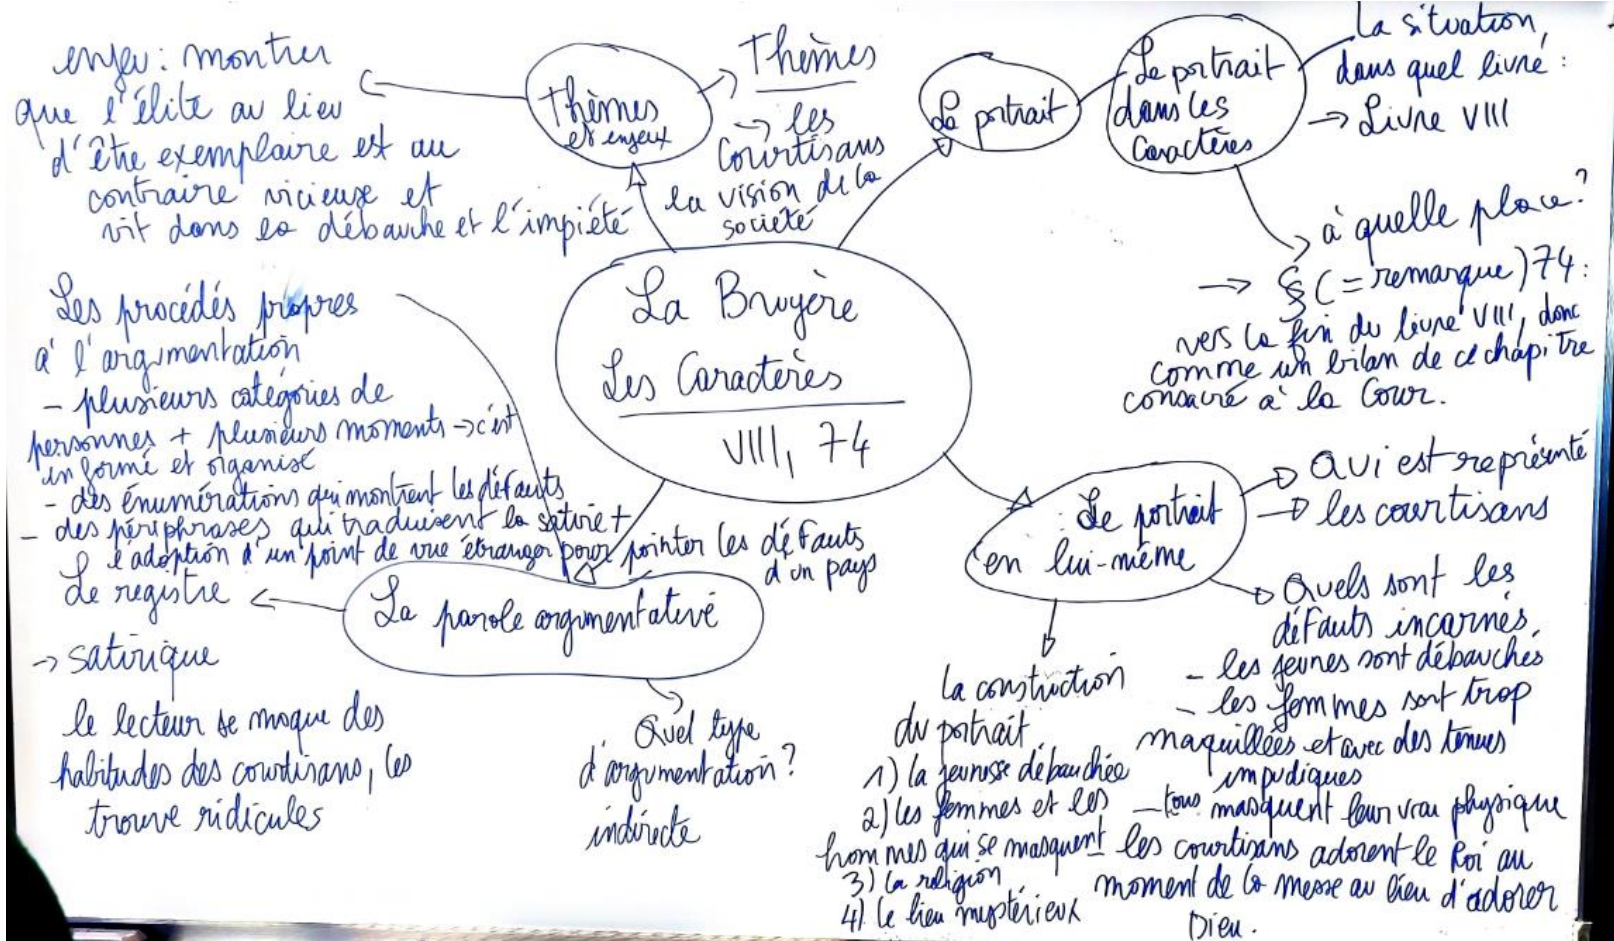 La Bruyère
Les Caractères
VIII, 74
Thèmes
et enjeux
enjeu : montrer
que l'élite au lieu
d'être exemplaire est au
contraire vicieuse et
vit dans la débauche et l'impiété
Thèmes
→ les
courtisans
la vision de la
société
Le portrait
Le portrait
dans les
Caractères
La situation,
dans quel livre :
→ Livre VIII
à quelle place ?
→ § ( = remarque ) 74 :
vers la fin du livre VIII, donc
comme un bilan de ce chapitre
consacré à la Cour.
Le portrait
en lui-même
Qui est représenté
→ les courtisans
Quels sont les
défauts incarnés,
- les jeunes sont débauchés
- les femmes sont trop
maquillées et avec des tenues
impudiques
- tous masquent leur vrai physique
- les courtisans adorent le Roi au
moment de la messe au lieu d'adorer
Dieu.
la construction
du portrait
1) la jeunesse débauchée
2) les femmes et les
hommes qui se masquent
3) la religion
4) le lieu mystérieux
La parole argumentative
Les procédés propres
à l'argumentation
- plusieurs catégories de
personnes + plusieurs moments → c'est
informé et organisé
- des énumérations qui montrent les défauts
- des périphrases qui traduisent la satire +
l'adoption d'un point de vue étranger pour pointer les défauts
d'un pays
Le registre
→ satirique
le lecteur se moque des
habitudes des courtisans, les
trouve ridicules
Quel type
d'argumentation ?
indirecte